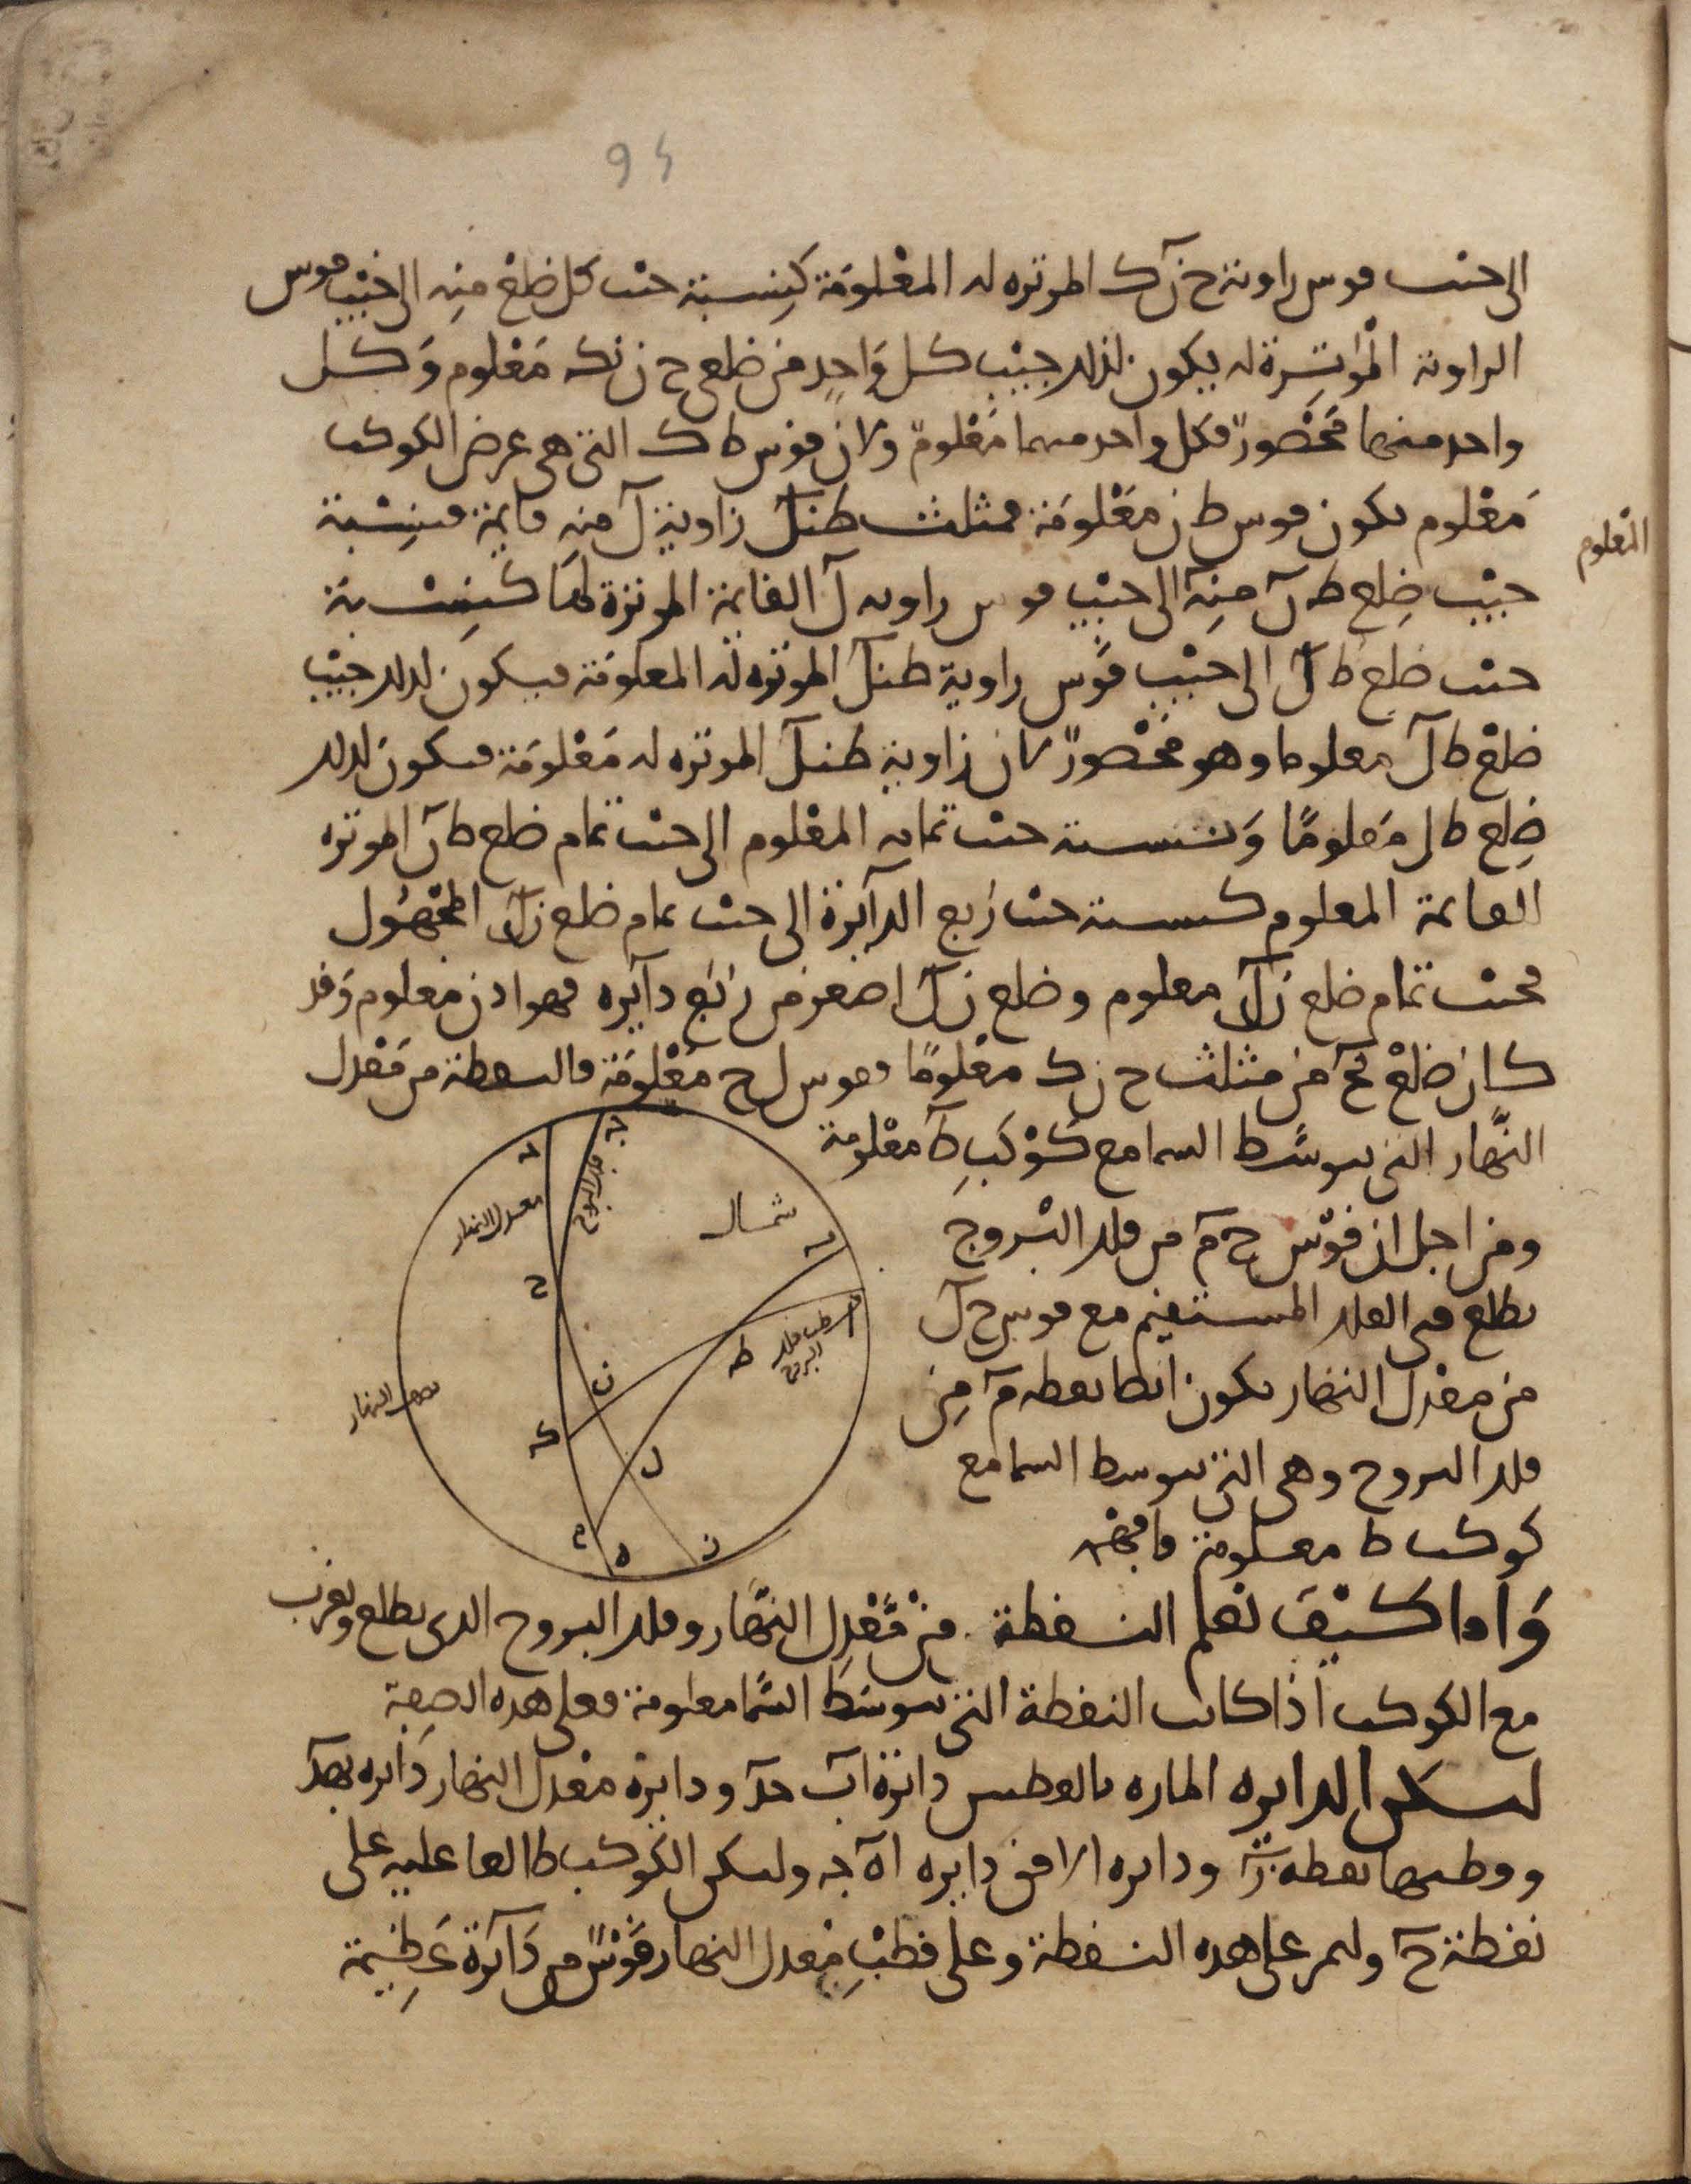 94
الى جيب قوس زاوية ح ز ك الموترة له المعلومة كنسبة جيب كل ضلع منه الى جيب قوس
الزاوية الموترة له يكون لذلك جيب كل واحد من ضلعي ح ز ز ك معلوم وكل
واحد منهما محصور فكل واحد منهما معلوم ولان قوس ط ك التي هي عرض الكوكب
المعلوم
معلوم تكون قوس ط ز معلومة فمثلث ط ز ل زاوية ل منه قايمة فنسبة
جيب ضلع ط ز منه الى جيب قوس زاوية ل القايمة الموترة لها كنسبة
جيب ضلع ط ل الى جيب قوس زاوية ط ز ل الموترة له المعلومة فيكون لذلك جيب
ضلع ط ل معلوما وهو محصور لان زاوية ط ز ل الموترة له معلومة فيكون لذلك
ضلع ط ل معلومًا ونسبة جيب تمامه المعلوم الى جيب تمام ضلع ط ز الموتره
القايمة المعلوم كنسبة جيب ربع الدآيرة الى جيب تمام ضلع ز ل المجهول
فجيب تمام ضلع ز ل معلوم وضلع ز ل اصغر من ربع دآيره فهو اذن معلوم وقد
كان ضلع ز ح من مثلث ح ز ك معلومًا فقوس ل ح معلومة فالنقطة من معدل
النهار التي تتوسط السما مع كوكب ط معلومة
ومن اجل ان قوس ح م من فلك البروج
تطلع في الفلك المستقيم مع قوس ح ل
من معدل النهار تكون ايضا نقطة م من
فلك البروج وهي التي تتوسط السما مع
كوكب ط معلومة فافهم
معدل النهار
فلك البروج
شمال
قطب فلك
البروج
نصف النهار
واما كيف نعلم النقطة من معدل النهار وفلك البروج الذي يطلع ويغرب
مع الكوكب اذا كانت النقطة التي تتوسط السما معلومة فعلى هذه الصفة
لتكن الدايره الماره بالقطبين دايرة ا ب ج د ودايرة معدل النهار دايره ب ه د
وقطبها نقطة ز ودايره الافق دايره ا ه ج وليكن الكوكب طالعا عليه على
نقطة ح وليمر على هذه النقطة وعلى قطب معدل النهار قوس من دآيرة عظيمة